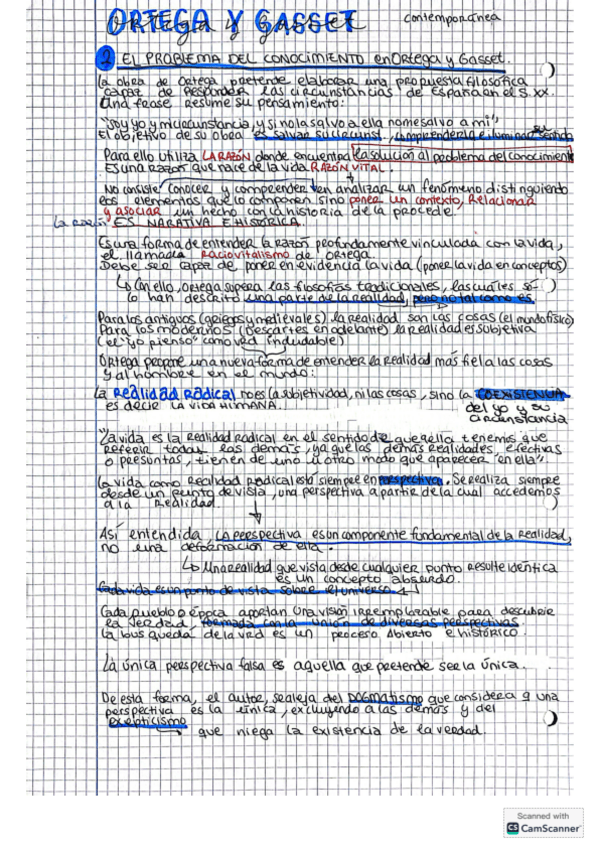 ORTEGA Y GASSET
contemporánea
EL PROBLEMA DEL CONOCIMIENTO en Ortega y Gasset.
La obra de Ortega pretende elaborar una propuesta filosófica
capaz de responder las circunstancias de España en el S.XX.
Una frase resume su pensamiento:
"Soy yo y mi circunstancia, y si no la salvo a ella no me salvo a mi"
El objetivo de su obra es salvar su circunst., comprenderla e iluminar su sentido
Para ello utiliza LA RAZÓN donde encuentra la solución al problema del conocimiento
Es una razón que nace de la vida RAZÓN VITAL.
No consiste conocer y comprender en analizar un fenómeno distinguiendo
los elementos que lo componen sino poner un contexto, relacionar
y asociar un hecho con la historia de la procede.
La razón ES NARRATIVA E HISTÓRICA.
Es una forma de entender la razón profundamente vinculada con la vida,
el llamada RACIOVITALISMO de ORTEGA.
Debe ser capaz de poner en evidencia la vida (poner la vida en conceptos)
↳ Con ello, Ortega supera las filosofías tradicionales, las cuales só-
lo han descrito una parte de la realidad, pero no tal como es
Para los antiguos (griegos y medievales) la realidad son las cosas (el mundo físico)
Para los modernos (Descartes en adelante) la realidad es subjetiva
(el "yo pienso" como ved indudable)
Ortega propone una nueva forma de entender la realidad más fiel a las cosas
y al hombre en el mundo:
La Realidad Radical no es la subjetividad, ni las cosas, sino la COEXISTENCIA
es decir LA VIDA HUMANA.
del yo y su
circunstancia
"La vida es la realidad radical en el sentido de que a ella tenemos que
referir todas las demás, ya que las demás realidades, efectivas
o presuntas, tienen de uno u otro modo que aparecer en ella".
La vida como realidad radical está siempre en perspectiva. Se realiza siempre
desde un punto de vista, una perspectiva a partir de la cual accedemos
a la realidad.
Así entendida, la perspectiva es un componente fundamental de la realidad,
no una deformación de ella.
↳ Una realidad que vista desde cualquier punto resulte idéntica
es un concepto absurdo.
Cada vida es un punto de vista sobre el universo
Cada pueblo o época aportan una visión irremplazable para descubrir
la verdad, formada con la unión de diversas perspectivas.
La busqueda de la ved es un proceso abierto e histórico.
La única perspectiva falsa es aquella que pretende ser la única.
De esta forma, el autor, se aleja del DOGMATISMO que considera q una
perspectiva es la única, excluyendo a las demás y del
escepticismo
que niega la existencia de la verdad.
Scanned with
CS CamScanner